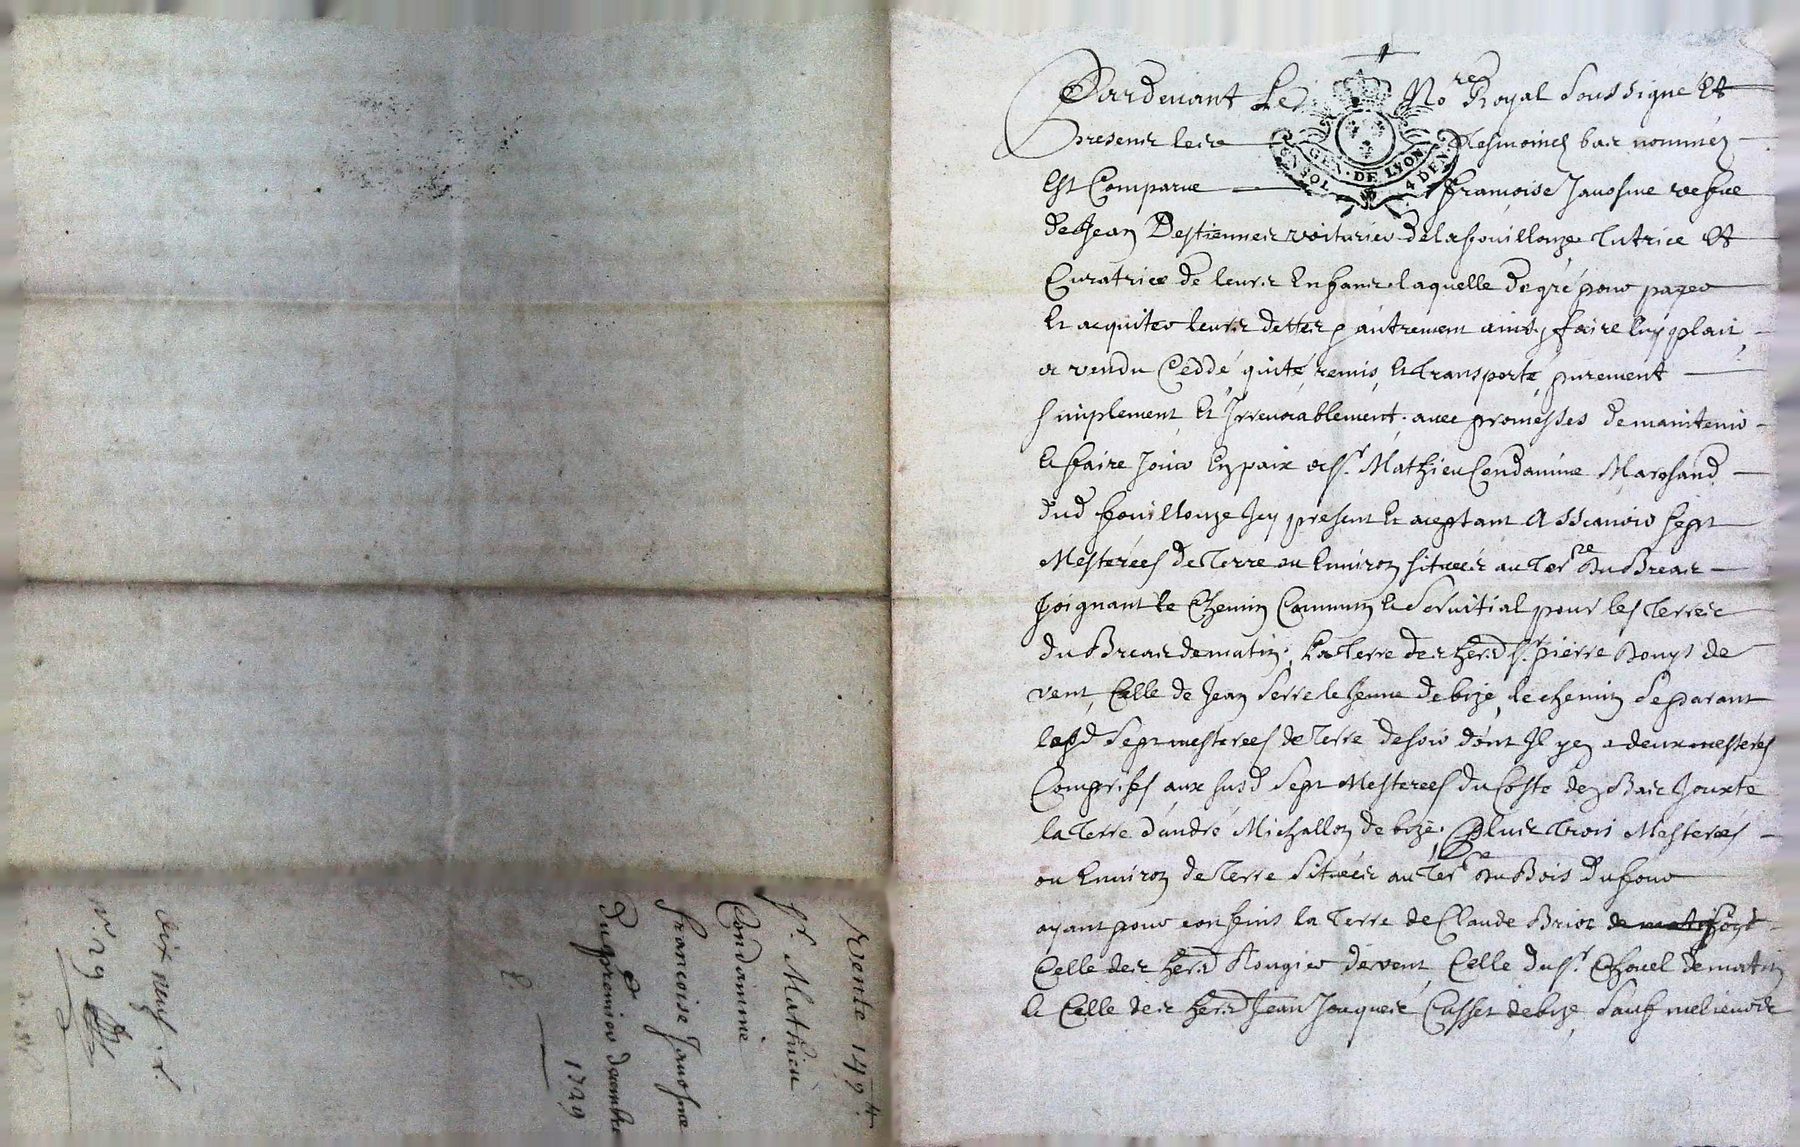 Pardevant Le No.re Royal soussigné Et
presents les tesmoings bas nommés
Est Comparue françoise Jauosme vefue
de Jean Destiennes voiturier de lafouillouze tutrice Et
Curatrice de leurs Enfans laquelle de gré pour payer
Et acquiter leurs dettes autrement ainsy faire luy plait
a vendu Ceddé quité remis et transporté purement
simplement Et Irreuocablement auec promesses de maintenir
Et faire Jouir En paix a s.r Mathieu Condamine Marchand
dud fouillouze Icy present Et aceptant Assauoir sept
Mesterées de Terre ou Enuiron situées au Ter.re du Breas
Joignant le Chemin Commun Et seruitial pour les Terres
du Breas de matin, La Terre des her.d s.r pierre de
vent, Celle de Jean serre le Jeune de bize, le chemin separant
lesd sept mesterees de Terre de soir dont Il y en a deux mesterés
Comprises aux susd sept Mesterees du Coste de Bas Jouxte
la Terre d'andré Michallon de bize, Plus Trois Mesterées
ou Enuiron de Terre situées au Ter.re du Bois dufour
ayant pour confins la Terre de Claude Brior
Celle des her.d Rougier de vent, Celle du s.r Chouel de matin
Et Celle des her.d Jean Jacques Cusset de bize, sauf
GEN. DE LYON
VN SOL 4 DEN.
Vente 149.tt
s.r Mathieu
Condamine
francoise Jauosme
Du premier decembre
1729
dix neuf. s.
n.° 29